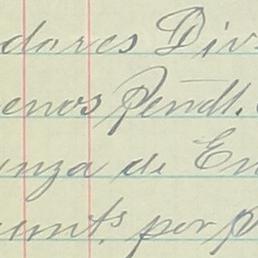 dores Div
enos Pendt.
nza de En
unts por P